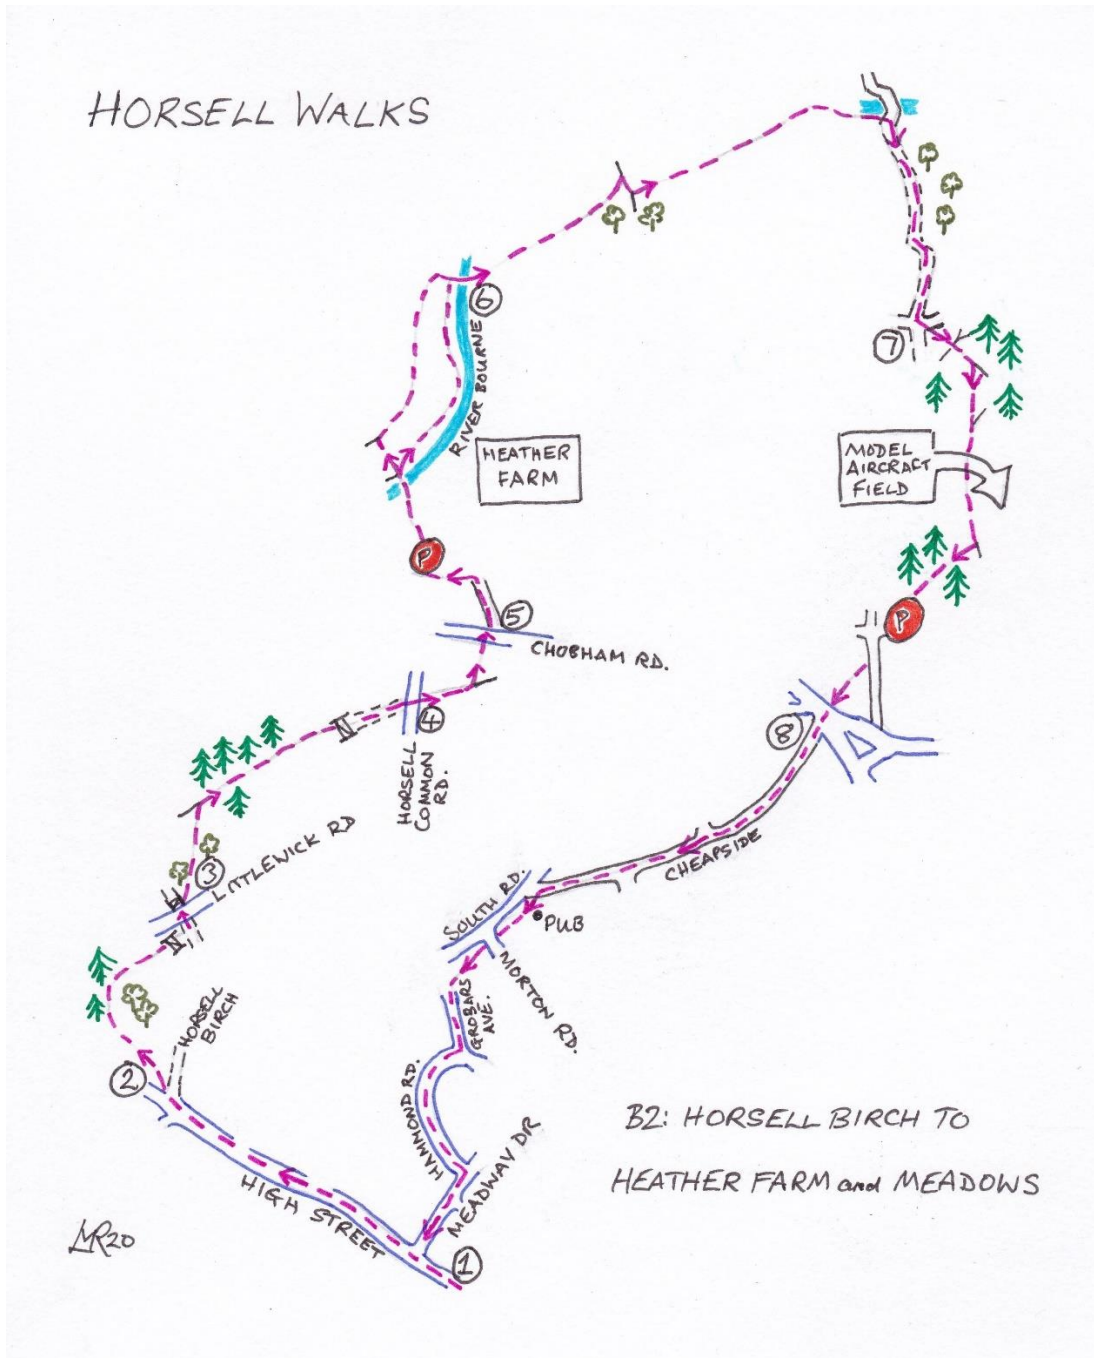 HORSELL WALKS
6
RIVER BOURNE
7
HEATHER
FARM
MODEL
AIRCRAFT
FIELD
P
5
P
CHOBHAM RD.
4
HORSELL
COMMON
RD.
8
LITTLEWICK RD
3
CHEAPSIDE
SOUTH RD.
PUB
MORTON RD.
GROBARS
AVE.
HORSELL
BIRCH
2
HAMMOND RD.
MEADWAY DR
HIGH STREET
1
B2: HORSELL BIRCH TO
HEATHER FARM and MEADOWS
MR20